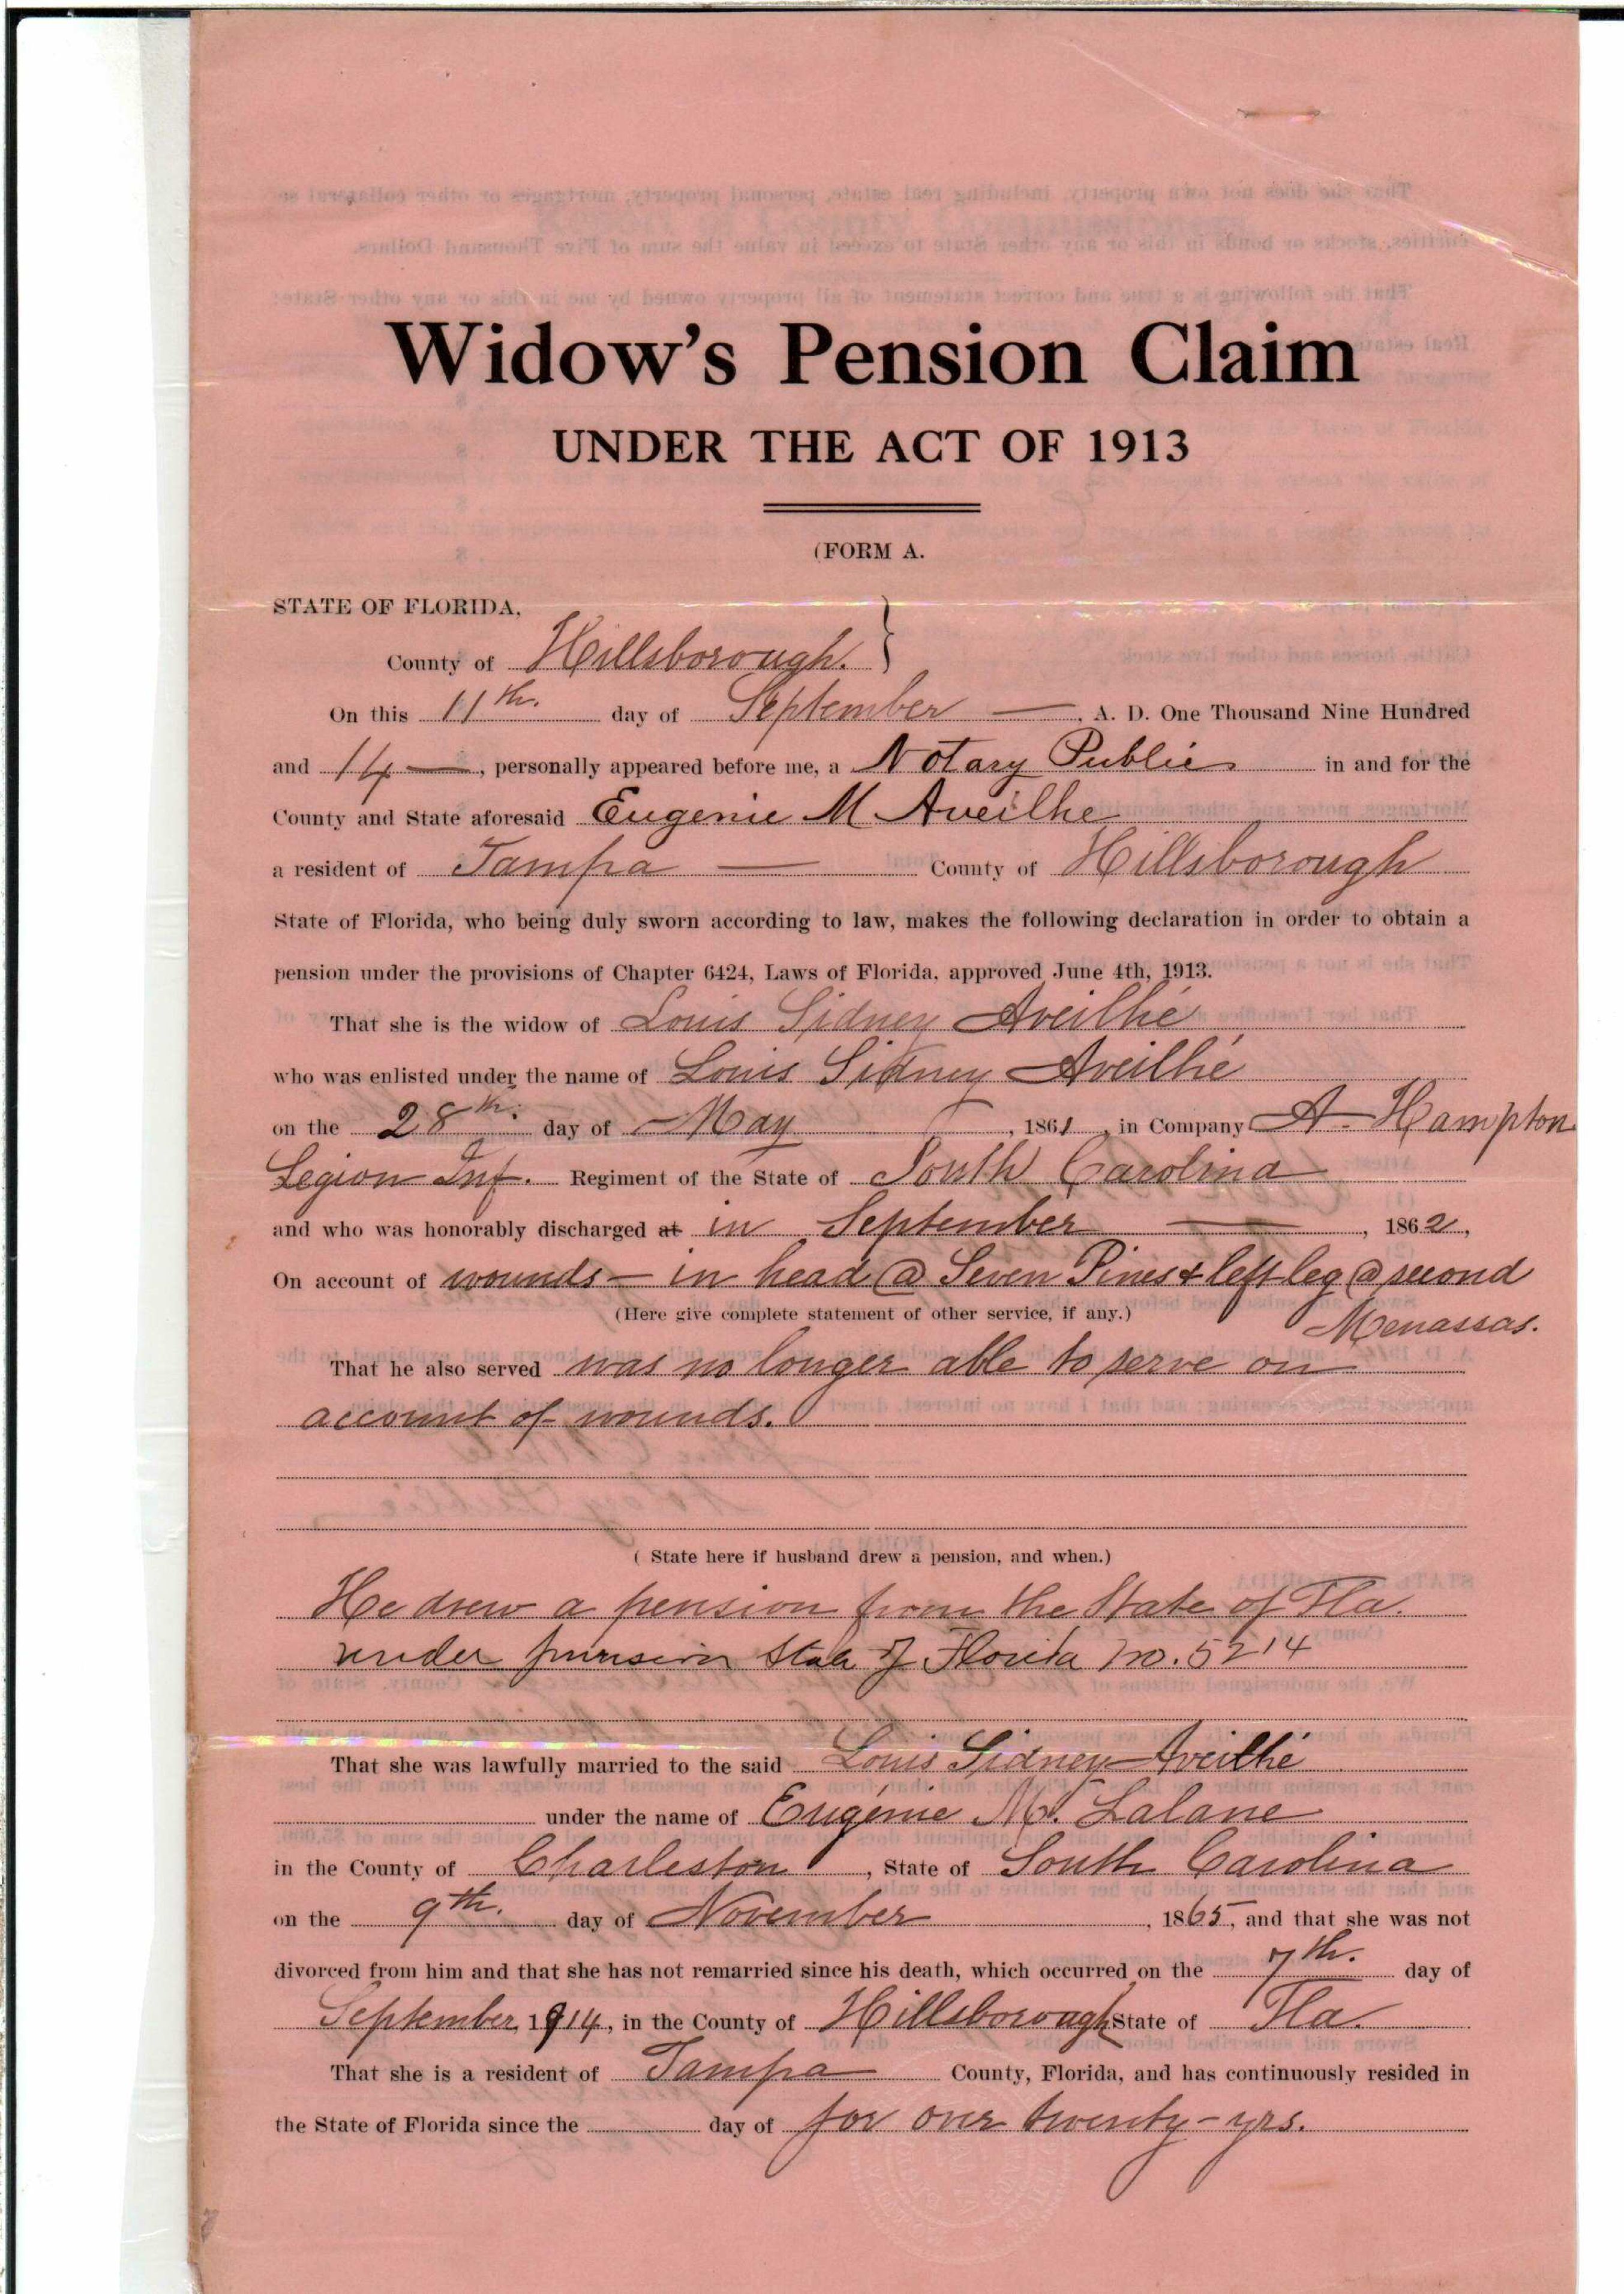 Widow's Pension Claim
UNDER THE ACT OF 1913
(FORM A.
STATE OF FLORIDA,
County of Hillsborough.
On this 11th. day of September —, A. D. One Thousand Nine Hundred
and 14 —, personally appeared before me, a Notary Public in and for the
County and State aforesaid Eugenie M Aveilhe
a resident of Tampa — County of Hillsborough
State of Florida, who being duly sworn according to law, makes the following declaration in order to obtain a
pension under the provisions of Chapter 6424, Laws of Florida, approved June 4th, 1913.
That she is the widow of Louis Sidney Aveilhé
who was enlisted under the name of Louis Sidney Aveilhé
on the 28th. day of May, 1861, in Company A - Hampton
Legion Inf. Regiment of the State of South Carolina
and who was honorably discharged at in September —, 1862,
On account of wounds — in head @ Seven Pines & left leg @ second
(Here give complete statement of other service, if any.)
Menassas.
That he also served was no longer able to serve on
account of wounds.
( State here if husband drew a pension, and when.)
He drew a pension from the State of Fla.
under State of Florida no. 5214
That she was lawfully married to the said Louis Sidney Aveilhé
under the name of Eugénie M. Lalane
in the County of Charleston, State of South Carolina
on the 9th. day of November, 1865, and that she was not
divorced from him and that she has not remarried since his death, which occurred on the 7th. day of
September, 1914, in the County of Hillsborough State of Fla.
That she is a resident of Tampa County, Florida, and has continuously resided in
the State of Florida since the day of for over twenty - yrs.